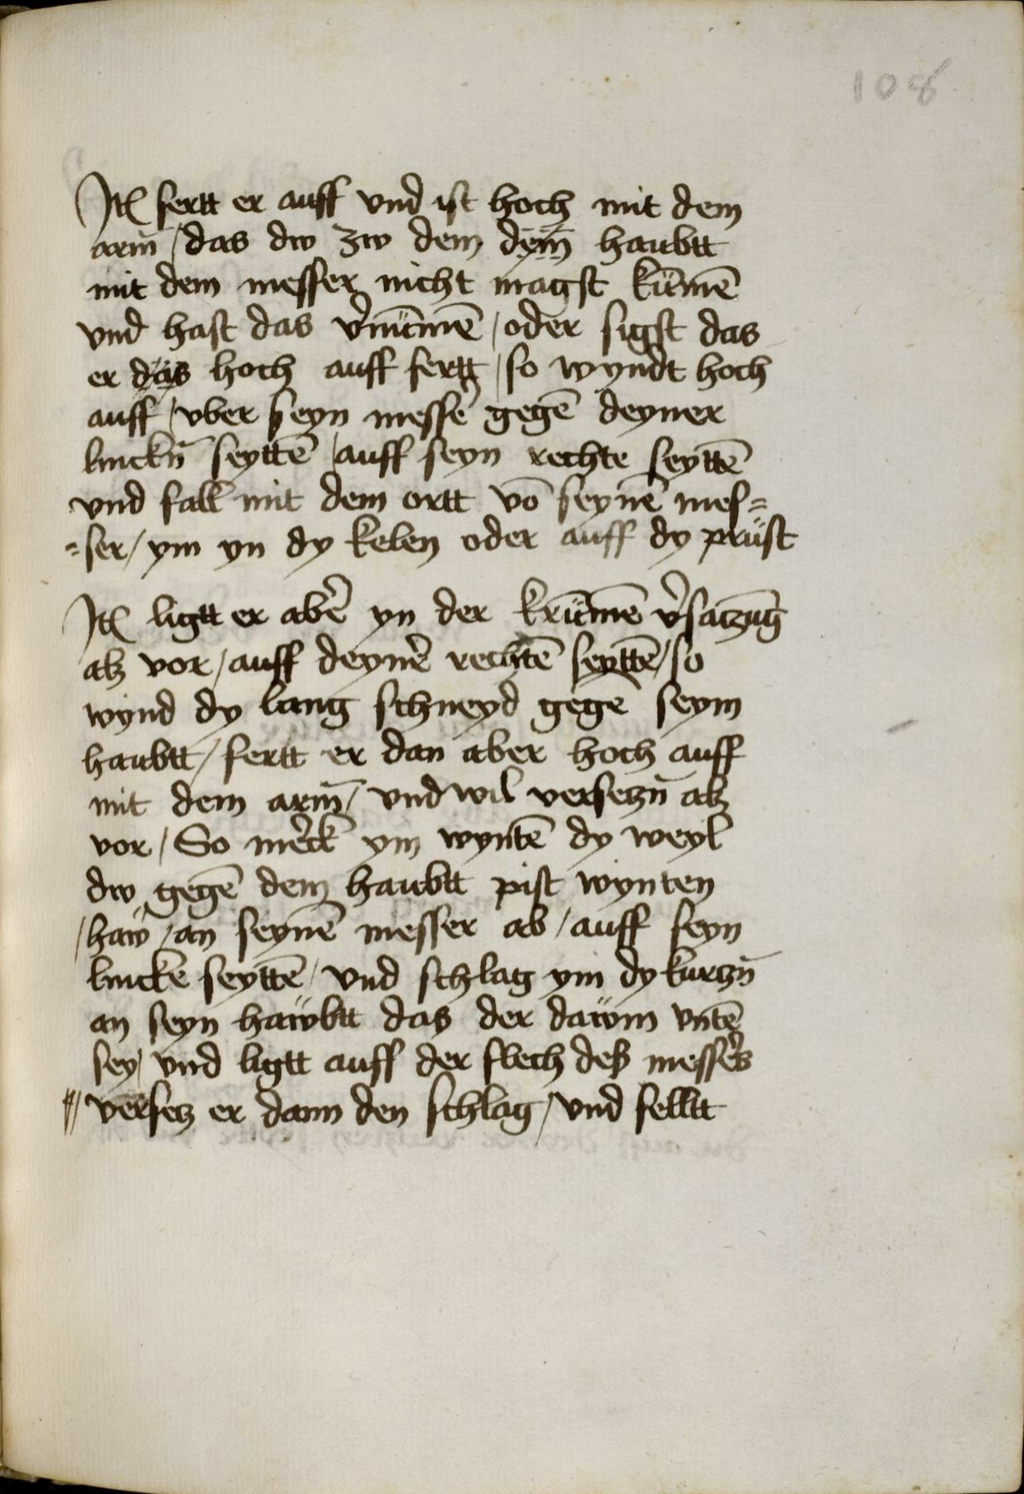 108
Itẽ fertt er auff vnd ist hoch mit dem
arm̄ / das dw zw dem dem̄ haubtt
mit dem messer nicht magst kum̄ē
vnd hast das v̉num̄ē / oder sigst das
er das hoch auff fertt / so wyndt hoch
auff / vber seyn messe᷑ gegē deyner
linckn̄ seyttē / auff seyn rechte seyttē
vnd fall mit dem ortt vō seynē mes=
=ser / ym yn dy kelen oder auff dy prüst
Itẽ ligtt er abe᷑ yn der krum̄ē v̉satzūg
alz vor / auff deyne᷑ rechtē seyttē / so
wynd dy lang schneyd gegē seym
haubtt / fertt er dan aber hoch auff
mit dem arm̄ / vnd wil versetzn̄ alz
vor / So me᷑ck ym wyntē dy weyl
dw gegē dem haubtt pist wynten
/ haw / an seynē messer ab / auff seyn
linckē seyttē / vnd schlag ym dy kurtzn̄
an seyn hawbtt das der dawm vntē
sey / vnd ligtt auff der flech deß messe᷑s
// versetz er dann den schlag / vnd felltt